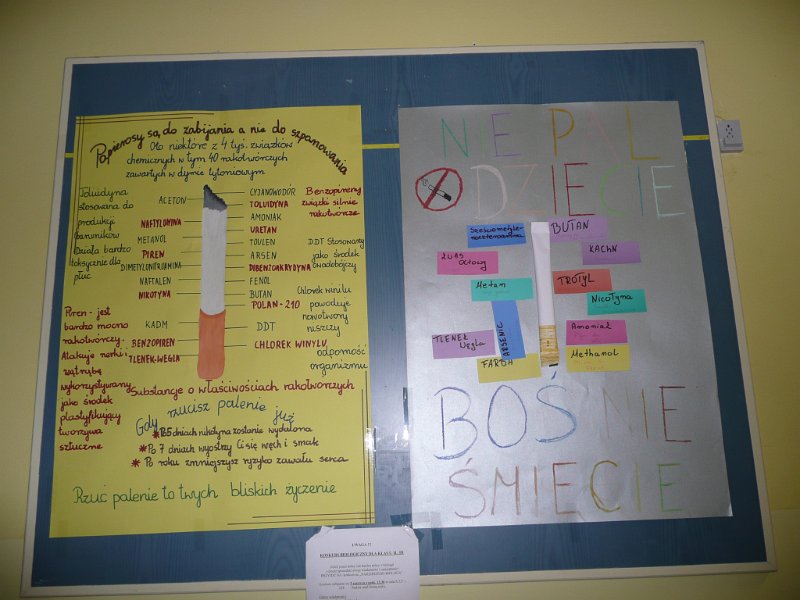 Papierosy są do zabijania a nie do szpanowania
Oto niektóre z 4 tyś. związków
chemicznych w tym 40 rakotwórczych
zawartych w dymie tytoniowym
Toluidyna
stosowana do
produkcji
barwników
Działa bardzo
toksycznie dla
płuc
Piren - jest
bardzo mocno
rakotwórczy.
Atakuje nerki,
wątrobę
wykorzystywany
jako środek
plastyfikujący
tworzywa
sztuczne
ACETON
NAFTYLOWINA
METANOL
PIREN
DIMETYLONITROAMINA
NAFTALEN
NIKOTYNA
KADM
BENZOPIREN
TLENEK-WĘGLA
CYJANOWODÓR
TOLUIDYNA
AMONIAK
URETAN
TOULEN
ARSEN
DIBENZOAKRYDYNA
FENOL
BUTAN
POLAN-210
DDT
CHLOREK WINYLU
Benzopireny
związki silnie
rakotwórcze
DDT Stosowany
jako środek
owadobójczy
Chlorek winylu
powoduje
nowotwory
niszczy
odporność
organizmu
Substancje o właściwościach rakotwórczych
Gdy rzucisz palenie już
dniach nikotyna zostanie wydalona
* Po 7 dniach wyostrzy Ci się węch i smak
* Po roku zmniejszysz ryzyko zawału serca
Rzuć palenie to twych bliskich życzenie
NIE PAL
DZIECIE
BUTAN
KADM
KWAS
Octowy
Metan
TROTYL
Nikotyna
ARSENIC
TLENEK
Węgla
Amoniak
FARBA
Methanol
BOŚ NIE
ŚMIECIE
UWAGA !!!